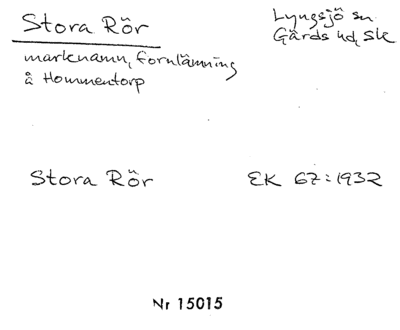 Stora Rör
Lyngsjö sn
Gärds hd, Sk
marknamn, fornlämning
å Hommentorp
Stora Rör
EK 67:1932
Nr 15015